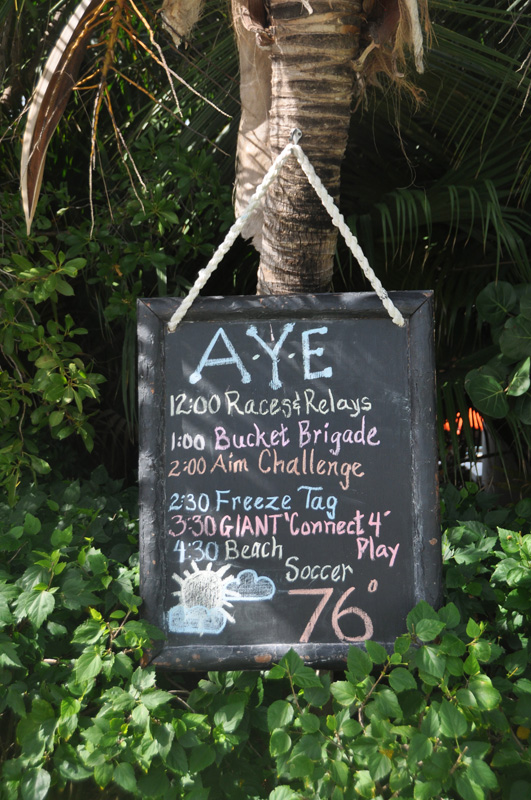 A·Y·E
12:00 Races & Relays
1:00 Bucket Brigade
2:00 Aim Challenge
2:30 Freeze Tag
3:30 GIANT "Connect 4" Play
4:30 Beach Soccer
76°